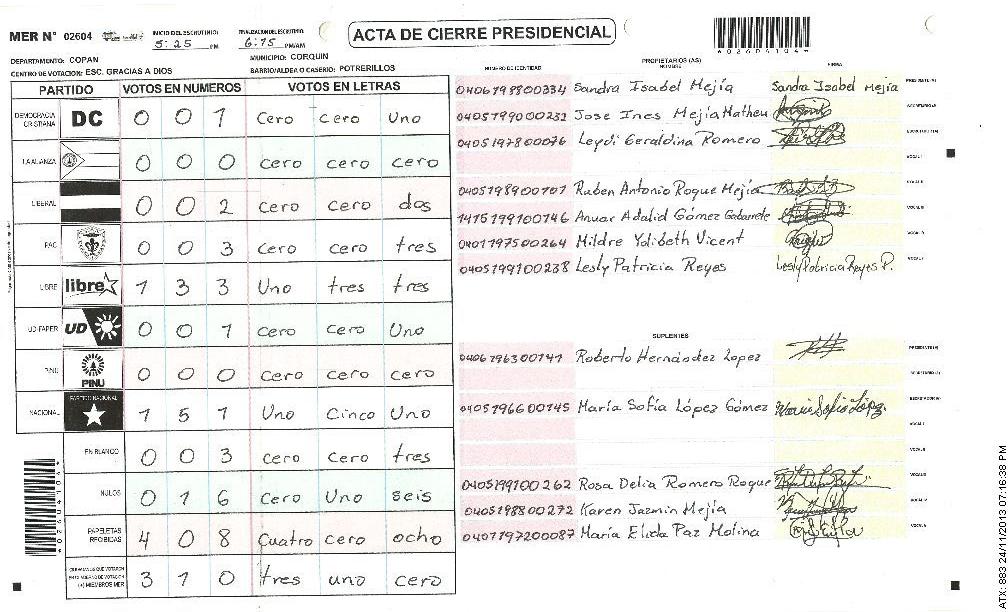 MER N° 02604 INICIO DEL ESCRUTINIO: 5:25 PM FINALIZACION ESCRUTINIO: 6:15 PM/AM
ACTA DE CIERRE PRESIDENCIAL
DEPARTAMENTO: COPAN MUNICIPIO: CORQUIN
CENTRO DE VOTACION: ESC. GRACIAS A DIOS BARRIO/ALDEA O CASERIO: POTRERILLOS
PARTIDO VOTOS EN NUMEROS VOTOS EN LETRAS
DEMOCRACIA CRISTIANA DC 0 0 1 Cero cero Uno
LA ALIANZA 0 0 0 cero cero cero
LIBERAL 0 0 2 cero cero dos
PAC 0 0 3 cero cero tres
LIBRE libre 1 3 3 Uno tres tres
UD-FAPER UD 0 0 1 cero cero Uno
PINU PINU 0 0 0 cero cero cero
NACIONAL PARTIDO NACIONAL 1 5 1 Uno Cinco Uno
EN BLANCO 0 0 3 cero cero tres
NULOS 0 1 6 cero Uno seis
PAPELETAS RECIBIDAS 4 0 8 Cuatro cero ocho
CIUDADANOS QUE VOTARON EN CUADERNO DE VOTACION (+) MIEMBROS MER 3 1 0 tres uno cero
PROPIETARIOS (AS)
NUMERO DE IDENTIDAD NOMBRE FIRMA
0406198800334 Sandra Isabel Mejía Sandra Isabel Mejia PRESIDENTE(A)
0405199000232 Jose Ines Mejía Matheu SECRETARIO(A)
0405197800076 Leydi Geraldina Romero ESCRUTADOR(A)
VOCAL I
0405198900701 Ruben Antonio Roque Mejía VOCAL II
1415199100146 Anuar Adalid Gómez Gabarrete VOCAL III
0401197500264 Mildre Yolibeth Vicent VOCAL IV
0405199100238 Lesly Patricia Reyes Lesly Patricia Reyes P. VOCAL V
SUPLENTES
0406196300141 Roberto Hernández Lopez PRESIDENTE(A)
SECRETARIO(A)
0405196600145 María Sofía López Gómez Maria Sofia López ESCRUTADOR(A)
VOCAL I
VOCAL II
0405199100262 Rosa Delia Romero Roque VOCAL III
0405198800272 Karen Jazmin Mejía VOCAL IV
0401197200087 María Elida Paz Molina VOCAL V
ATX: 883 24/11/2013 07:16:38 PM